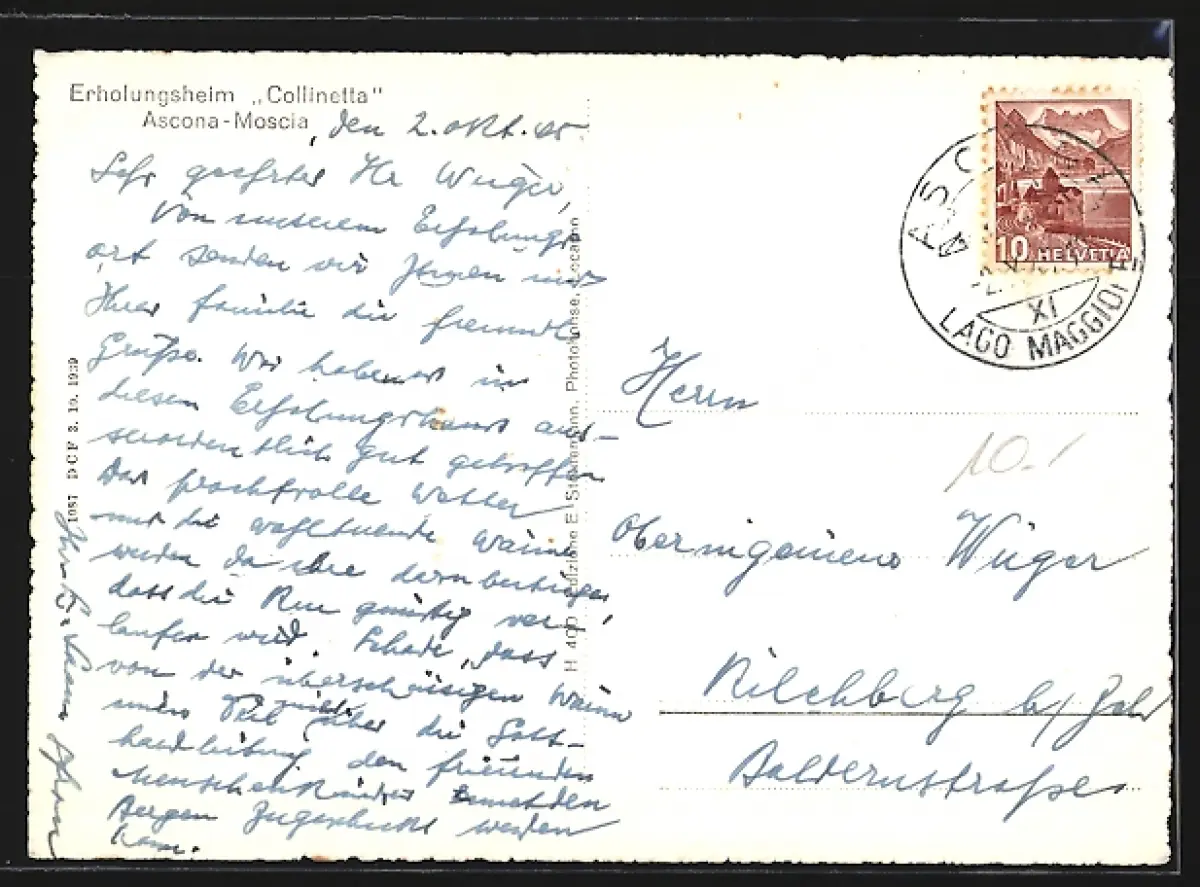 Erholungsheim „Collinetta"
Ascona-Moscia, den 2. Okt. 45
Sehr geehrter Hr Wüger,
Von unserem Erholungs
ort senden wir Ihnen und
Ihrer Familie die freundl
Grüße. Wir haben es in
diesem Erholungshaus aus-
serordentlich gut getroffen
Das prachtvolle Wetter
und die wohltuende Wärme
werden das ihre dazu beitragen,
dass die Kur günstig ver
laufen wird. Schade, dass
von der überschüssigen Wärme
Teil nicht über die Gott-
hardleitung den frierenden
Menschenkinder ennet den
Bergen Zugeschickt werden
kann.
1087 DCF 3. 10. 1939
H 400 Edizione E. Steinemann, Photohouse, Locarno
ASCONA
LAGO MAGGIORE
XI
10 HELVETIA
Herrn
10.-
Oberingenieur Wüger
Kilchberg b/ Zch
Aldernstraße